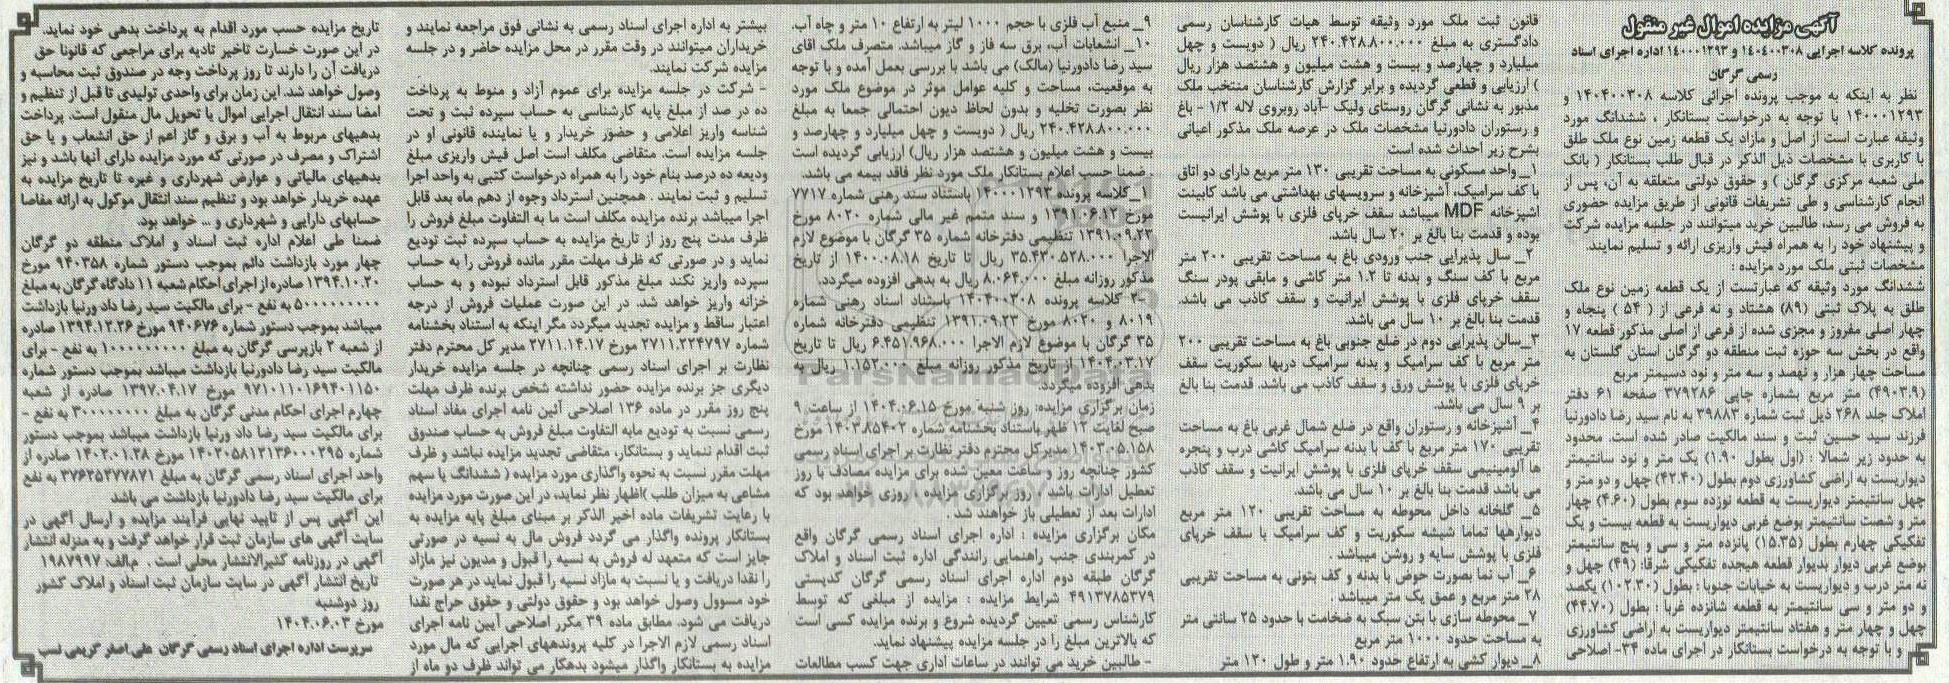 آگهی مزایده اموال غیر منقول
پرونده کلاسه اجرایی ۱۴۰۴۰۰۳۰۸ و ۱۴۰۰۰۱۲۹۳ اداره اجرای اسناد
رسمی گرگان
نظر به اینکه به موجب پرونده اجرائی کلاسه ۱۴۰۴۰۰۳۰۸ و
۱۴۰۰۰۱۲۹۳ با توجه به درخواست بستانکار ، ششدانگ مورد
وثیقه عبارت است از اصل و مازاد یک قطعه زمین نوع ملک طلق
با کاربری با مشخصات ذیل الذکر در قبال طلب بستانکار ( بانک
ملی شعبه مرکزی گرگان ) و حقوق دولتی متعلقه به آن، پس از
انجام کارشناسی و طی تشریفات قانونی از طریق مزایده حضوری
به فروش می رسد، طالبین خرید میتوانند در جلسه مزایده شرکت
و پیشنهاد خود را به همراه فیش واریزی ارائه و تسلیم نمایند.
مشخصات ثبتی ملک مورد مزایده :
ششدانگ مورد وثیقه که عبارتست از یک قطعه زمین نوع ملک
طلق به پلاک ثبتی (۸۹) هشتاد و نه فرعی از ( ۵۴ ) پنجاه و
چهار اصلی مفروز و مجزی شده از فرعی از اصلی مذکور قطعه ۱۷
واقع در بخش سه حوزه ثبت منطقه دو گرگان استان گلستان به
مساحت چهار هزار و نهصد و سه متر و نود دسیمتر مربع
(۴۹۰۳.۹) متر مربع بشماره چاپی ۳۷۹۲۸۶ صفحه ۶۱ دفتر
املاک جلد ۲۶۸ ذیل ثبت شماره ۳۹۸۸۳ به نام سید رضا دادورنیا
فرزند سید حسین ثبت و سند مالکیت صادر شده است. محدود
به حدود زیر شمالا : (اول بطول (۱.۹۰) یک متر و نود سانتیمتر
دیواریست به اراضی کشاورزی دوم بطول (۴۲.۴۰) چهل و دو متر و
چهل سانتیمتر دیواریست به قطعه نوزده سوم بطول (۴.۶۰) چهار
متر و شصت سانتیمتر بوضع غربی دیواریست به قطعه بیست و یک
تفکیکی چهارم بطول (۱۵.۳۵) پانزده متر و سی و پنج سانتیمتر
بوضع غربی دیوار بدیوار قطعه هیجده تفکیکی شرقا: (۴۹) چهل و
نه متر درب و دیواریست به خیابات جنوبا : بطول (۱۰۲.۳۰) یکصد
و دو متر و سی سانتیمتر به قطعه شانزده غربا : بطول (۴۴.۷۰)
چهل و چهار متر و هفتاد سانتیمتر دیواریست به اراضی کشاورزی
و با توجه به درخواست بستانکار در اجرای ماده ۳۴- اصلاحی
قانون ثبت ملک مورد وثیقه توسط هیات کارشناسان رسمی
دادگستری به مبلغ ۲۴۰.۴۲۸.۸۰۰.۰۰۰ ریال ( دویست و چهل
میلیارد و چهارصد و بیست و هشت میلیون و هشتصد هزار ریال
) ارزیابی و قطعی گردیده و برابر گزارش کارشناسان منتخب ملک
مذبور به نشانی گرگان روستای ولیک -آباد روبروی لاله ۱/۲ - باغ
و رستوران دادورنیا مشخصات ملک در عرصه ملک مذکور اعیانی
بشرح زیر احداث شده است
۱_ واحد مسکونی به مساحت تقریبی ۱۳۰ متر مربع دارای دو اتاق
با کف سرامیک، آشپزخانه و سرویسهای بهداشتی می باشد کابینت
آشپزخانه MDF میباشد سقف خرپای فلزی با پوشش ایرانیست
بوده و قدمت بنا بالغ بر ۲۰ سال باشد.
۲_ سال پذیرایی جنب ورودی باغ به مساحت تقریبی ۲۰۰ متر
مربع با کف سنگ و بدنه تا ۱.۲ متر کاشی و مابقی پودر سنگ
سقف خرپای فلزی با پوشش ایرانیت و سقف کاذب می باشد.
قدمت بنا بالغ بر ۱۰ سال می باشد.
۳_سالن پذیرایی دوم در ضلع جنوبی باغ به مساحت تقریبی ۲۰۰
متر مربع با کف سرامیک و بدنه سرامیک دربها سکوریت سقف
خرپای فلزی با پوشش ورق و سقف کاذب می باشد. قدمت بنا بالغ
بر ۹ سال می باشد.
۴_ آشپزخانه و رستوران واقع در ضلع شمال غربی باغ به مساحت
تقریبی ۱۷۰ متر مربع با کف با بدنه سرامیک کاشی درب و پنجره
ها آلومینیمی سقف خرپای فلزی با پوشش ایرانیت و سقف کاذب
می باشد قدمت بنا بالغ بر ۱۰ سال می باشد.
۵_ گلخانه داخل محوطه به مساحت تقریبی ۱۲۰ متر مربع
دیوارهها تماما شیشه سکوریت و کف سرامیک با سقف خرپای
فلزی با پوشش سایه و روشن میباشد .
۶_ آب نما بصورت حوض با بدنه و کف بتونی به مساحت تقریبی
۲۸ متر مربع و عمق یک متر میباشد .
۷_ محوطه سازی با بتن سبک به ضخامت با حدود ۲۵ سانتی متر
به مساحت حدود ۱۰۰۰ متر مربع
۸_ دیوار کشی به ارتفاع حدود ۱.۹۰ متر و طول ۱۲۰ متر
۹_ منبع آب فلزی با حجم ۱۰۰۰ لیتر به ارتفاع ۱۰ متر و چاه آب.
۱۰_ انشعابات آب، برق سه فاز و گاز میباشد. متصرف ملک آقای
سید رضا دادورنیا (مالک) می باشد با بررسی بعمل آمده و با توجه
به موقعیت، مساحت و کلیه عوامل موثر در موضوع ملک مورد
نظر بصورت تخلیه و بدون لحاظ دیون احتمالی جمعا به مبلغ
۲۴۰.۴۲۸.۸۰۰.۰۰۰ ریال ( دویست و چهل میلیارد و چهارصد و
بیست و هشت میلیون و هشتصد هزار ریال) ارزیابی گردیده است
. ضمنا حسب اعلام بستانکار ملک مورد نظر فاقد بیمه می باشد.
۱_ کلاسه پرونده ۱۴۰۰۰۱۲۹۳ باستناد سند رهنی شماره ۷۷۱۷
مورخ ۱۳۹۱.۰۶.۱۲ و سند متمم غیر مالی شماره ۸۰۲۰ مورخ
۱۳۹۱.۰۹.۲۳ تنظیمی دفترخانه شماره ۳۵ گرگان با موضوع لازم
الاجرا ۳۵.۴۳۰.۵۲۸.۰۰۰ ریال تا تاریخ ۱۴۰۰.۰۸.۱۸ از تاریخ
مذکور روزانه مبلغ ۸.۰۶۴.۰۰۰ ریال به بدهی افزوده میگردد.
۲-) کلاسه پرونده ۱۴۰۴۰۰۳۰۸ باستناد اسناد رهنی شماره
۸۰۱۹ و ۸۰۲۰ مورخ ۱۳۹۱.۰۹.۲۳ تنظیمی دفترخانه شماره
۳۵ گرگان با موضوع لازم الاجرا ۶.۴۵۱.۹۶۸.۰۰۰ ریال تا تاریخ
۱۴۰۴.۰۳.۱۷ از تاریخ مذکور روزانه مبلغ ۱.۱۵۲.۰۰۰ ریال به
بدهی افزوده میگردد.
زمان برگزاری مزایده: روز شنبه مورخ ۱۴۰۴.۰۶.۱۵ از ساعت ۹
صبح لغایت ۱۲ ظهر باستناد بخشنامه شماره ۱۴۰۳.۸۵۴۰۲ مورخ
۱۴۰۳.۰۵.۱۵۸ مدیرکل محترم دفتر نظارت بر اجرای اسناد رسمی
کشور چنانچه روز و ساعت معین شده برای مزایده مصادف با روز
تعطیل ادارات باشد ، روز برگزاری مزایده ، اروزی خواهد بود که
ادارات بعد از تعطیلی باز خواهند شد .
مکان برگزاری مزایده : اداره اجرای اسناد رسمی گرگان واقع
در کمربندی جنب راهنمایی رانندگی اداره ثبت اسناد و املاک
گرگان طبقه دوم اداره اجرای اسناد رسمی گرگان کدپستی
۴۹۱۳۷۸۵۳۷۹ شرایط مزایده : مزایده از مبلغی که توسط
کارشناس رسمی تعیین گردیده شروع و برنده مزایده کسی است
که بالاترین مبلغ را در جلسه مزایده پیشنهاد نماید.
- طالبین خرید می توانند در ساعات اداری جهت کسب مطالعات
بیشتر به اداره اجرای اسناد رسمی به نشانی فوق مراجعه نمایند و
خریداران میتوانند در وقت مقرر در محل مزایده حاضر و در جلسه
مزایده شرکت نمایند.
- شرکت در جلسه مزایده برای عموم آزاد و منوط به پرداخت
ده در صد از مبلغ پایه کارشناسی به حساب سپرده ثبت و تحت
شناسه واریز اعلامی و حضور خریدار و یا نماینده قانونی او در
جلسه مزایده است. متقاضی مکلف است اصل فیش واریزی مبلغ
ودیعه ده درصد بنام خود را به همراه درخواست کتبی به واحد اجرا
تسلیم و ثبت نمایند . همچنین استرداد وجوه از دهم ماه بعد قابل
اجرا میباشد برنده مزایده مکلف است ما به التفاوت مبلغ فروش را
ظرف مدت پنج روز از تاریخ مزایده به حساب سپرده ثبت تودیع
نماید و در صورتی که ظرف مهلت مقرر مانده فروش را به حساب
سپرده واریز نکند مبلغ مذکور قابل استرداد نبوده و به حساب
خزانه واریز خواهد شد. در این صورت عملیات فروش از درجه
اعتبار ساقط و مزایده تجدید میگردد مگر اینکه به استناد بخشنامه
شماره ۲۷۱۱.۲۲۴۷۹۷ مورخ ۲۷۱۱.۱۴.۱۷ مدیر کل محترم دفتر
نظارت بر اجرای اسناد رسمی چنانچه در جلسه مزایده خریدار
دیگری جز برنده مزایده حضور نداشته شخص برنده ظرف مهلت
پنج روز مقرر در ماده ۱۳۶ اصلاحی آئین نامه اجرای مفاد اسناد
رسمی نسبت به تودیع مابه التفاوت مبلغ فروش به حساب صندوق
ثبت اقدام ننماید و بستانکار، متقاضی تجدید مزایده نباشد و ظرف
مهلت مقرر نسبت به نحوه واگذاری مورد مزایده ( ششدانگ یا سهم
مشاعی به میزان طلب )اظهار نظر نماید، در این صورت مورد مزایده
با رعایت تشریفات ماده اخیر الذکر بر مبنای مبلغ پایه مزایده به
بستانکار پرونده واگذار می گردد فروش مال به نسیه در صورتی
جایز است که متعهد له فروش به نسیه را قبول و مدیون نیز مازاد
را نقدا دریافت و یا نسبت به مازاد نسیه را قبول نماید در هر صورت
خود مسوول وصول خواهد بود و حقوق دولتی و حقوق حراج نقدا
دریافت می شود. مطابق ماده ۳۹ مکرر اصلاحی آیین نامه اجرای
اسناد رسمی لازم الاجرا در کلیه پروندههای اجرایی که مال مورد
مزایده به بستانکار واگذار میشود بدهکار می تواند ظرف دو ماه از
تاریخ مزایده حسب مورد اقدام به پرداخت بدهی خود نماید.
در این صورت خسارت تاخیر تادیه برای مراجعی که قانونا حق
دریافت آن را دارند تا روز پرداخت وجه در صندوق ثبت محاسبه و
وصول خواهد شد. این زمان برای واحدی تولیدی تا قبل از تنظیم و
امضا سند انتقال اجرایی اموال یا تحویل مال منقول است. پرداخت
بدهیهای مربوط به آب و برق و گاز اعم از حق انشعاب و یا حق
اشتراک و مصرف در صورتی که مورد مزایده دارای آنها باشد و نیز
بدهیهای مالیاتی و عوارض شهرداری و غیره تا تاریخ مزایده به
عهده خریدار خواهد بود و تنظیم سند انتقال موکول به ارائه مفاصا
حسابهای دارایی و شهرداری و ... خواهد بود.
ضمنا طی اعلام اداره ثبت اسناد و املاک منطقه دو گرگان
چهار مورد بازداشت دائم بموجب دستور شماره ۹۴۰۳۵۸ مورخ
۱۳۹۴.۱۰.۲۰ صادره از اجرای احکام شعبه ۱۱ دادگاه گرگان به مبلغ
۵۰۰۰۰۰۰۰۰۰ به نفع - برای مالکیت سید رضا داد ورنیا بازداشت
میباشد بموجب دستور شماره ۹۴۰۶۷۶ مورخ ۱۳۹۴.۱۲.۲۶ صادره
از شعبه ۲ بازپرسی گرگان به مبلغ ۱۰۰۰۰۰۰۰۰۰ به نفع - برای
مالکیت سید رضا دادورنیا بازداشت میباشد بموجب دستور شماره
۹۷۱۰۱۱۰۱۶۹۴۰۱۱۵۰ مورخ ۱۳۹۷.۰۴.۱۷ صادره از شعبه
چهارم اجرای احکام مدنی گرگان به مبلغ ۳۰۰۰۰۰۰۰۰ به نفع -
برای مالکیت سید رضا داد ورنیا بازداشت میباشد بموجب دستور
شماره ۱۴۰۲۰۵۸۱۲۱۳۶۰۰۰۲۹۵ مورخ ۱۴۰۲.۰۱.۲۸ صادره از
واحد اجرای اسناد رسمی گرگان به مبلغ ۳۷۶۲۵۲۷۷۸۷۱ به نفع
برای مالکیت سید رضا دادورنیا بازداشت می باشد
این آگهی پس از تایید نهایی فرآیند مزایده و ارسال آگهی در
سایت آگهی های سازمان ثبت قرار خواهد گرفت و به منزله انتشار
آگهی در روزنامه کثیرالانتشار محلی است . م.الف: ۱۹۸۷۹۹۷
تاریخ انتشار آگهی در سایت سازمان ثبت اسناد و املاک کشور
روز دوشنبه
مورخ ۱۴۰۴.۰۶.۰۳
سرپرست اداره اجرای اسناد رسمی گرگان علی اصغر کریمی نسب